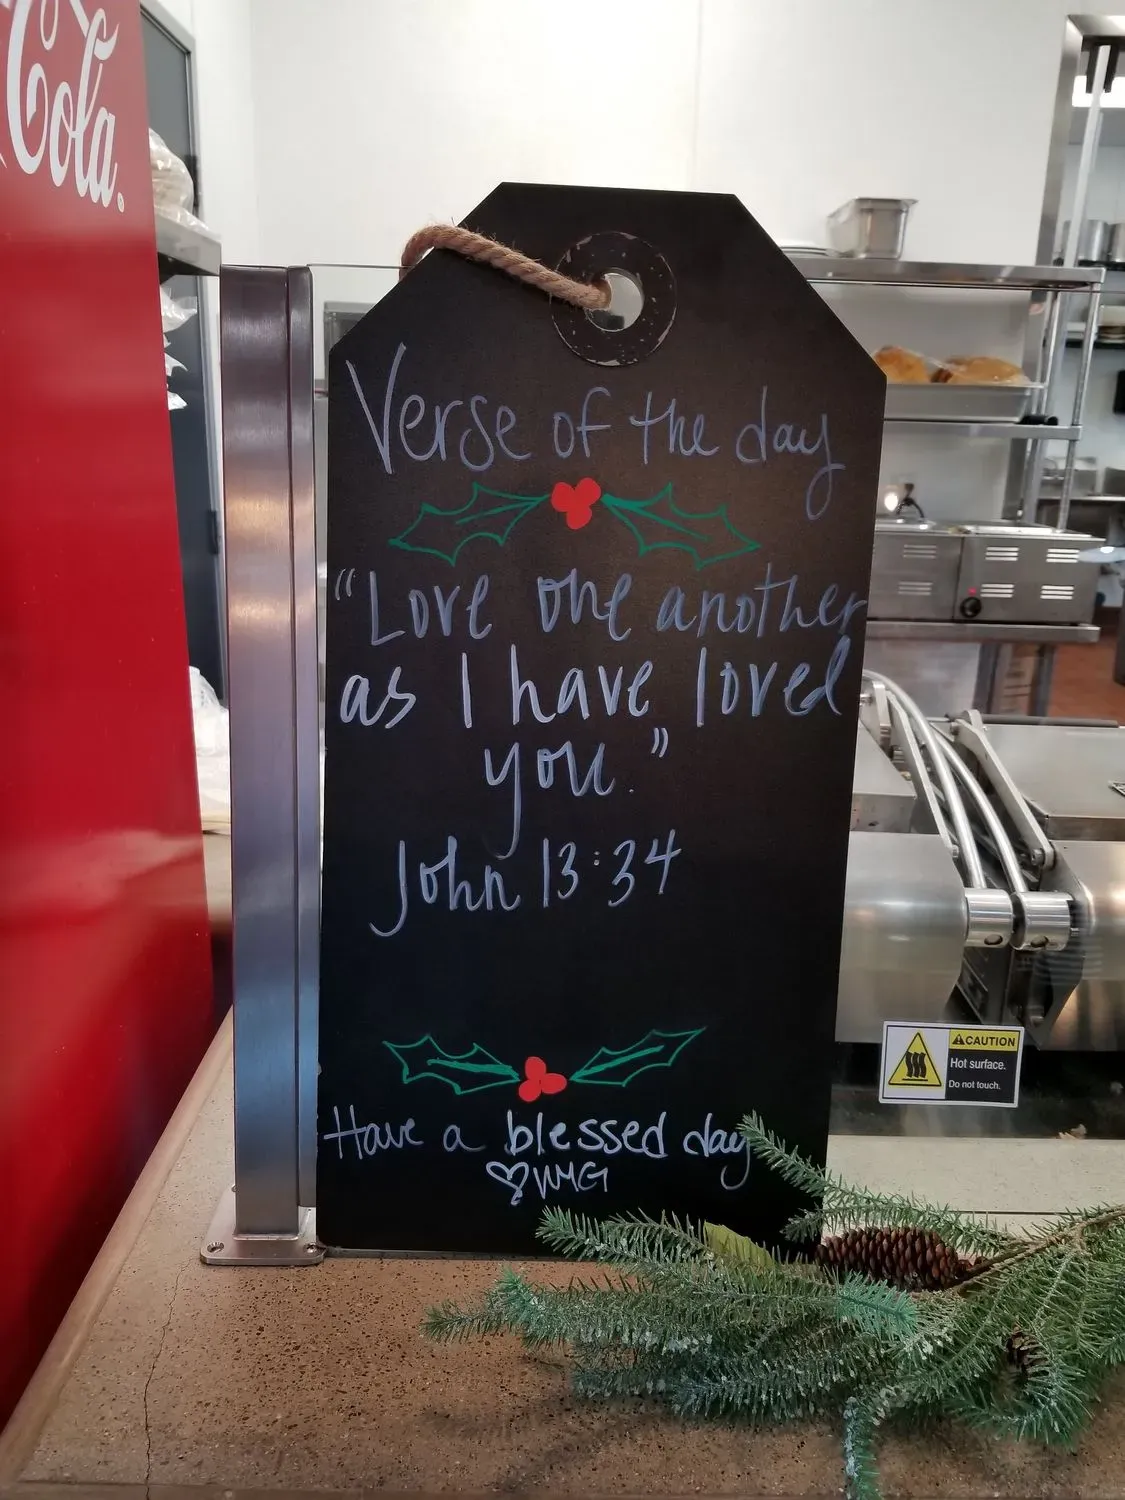 Cola
Verse of the day
"Love one another
as I have loved
you."
John 13:34
CAUTION
Hot surface.
Do not touch.
Have a blessed day
♡WMG